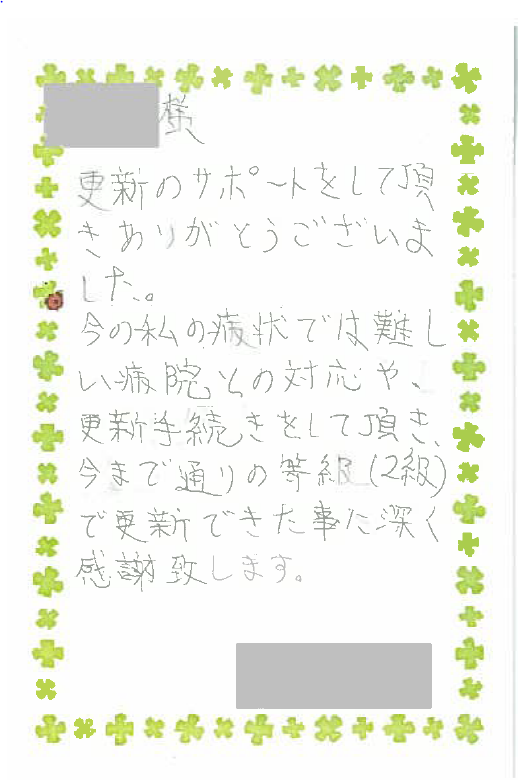 様
更新のサポートをして頂
きありがとうございま
した。
今の私の病状では難し
い病院との対応や、
更新手続きをして頂き、
今まで通りの等級(2級)
で更新できた事に深く
感謝致します。